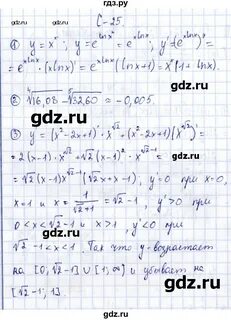 gdz.ru
С-25
① y = xˣ; y = e^(ln xˣ) = e^(x ln x); y' = (e^(x ln x))' =
= e^(x ln x) · (x ln x)' = e^(x ln x) (ln x + 1) = xˣ (1 + ln x).
② ⁴√16,08 - ⁵√32,60 ≈ -0,005.
③ y' = (x² - 2x + 1)' · x^√2 + (x² - 2x + 1)(x^√2)' =
= 2(x-1) · x^√2 + √2 (x-1)² · x^(√2-1) =
= √2 (x-1) x^(√2-1) (√2x + x - 1), y' = 0 при x = 0,
x = 1 и x = 1/(√2+1) = √2 - 1, y' > 0 при
0 < x < √2 - 1 и x > 1, y' < 0 при
√2 - 1 < x < 1. Так что y - возрастает
на [0; √2 - 1] ∪ [1; ∞) и убывает на
[√2 - 1; 1].
gdz.ru